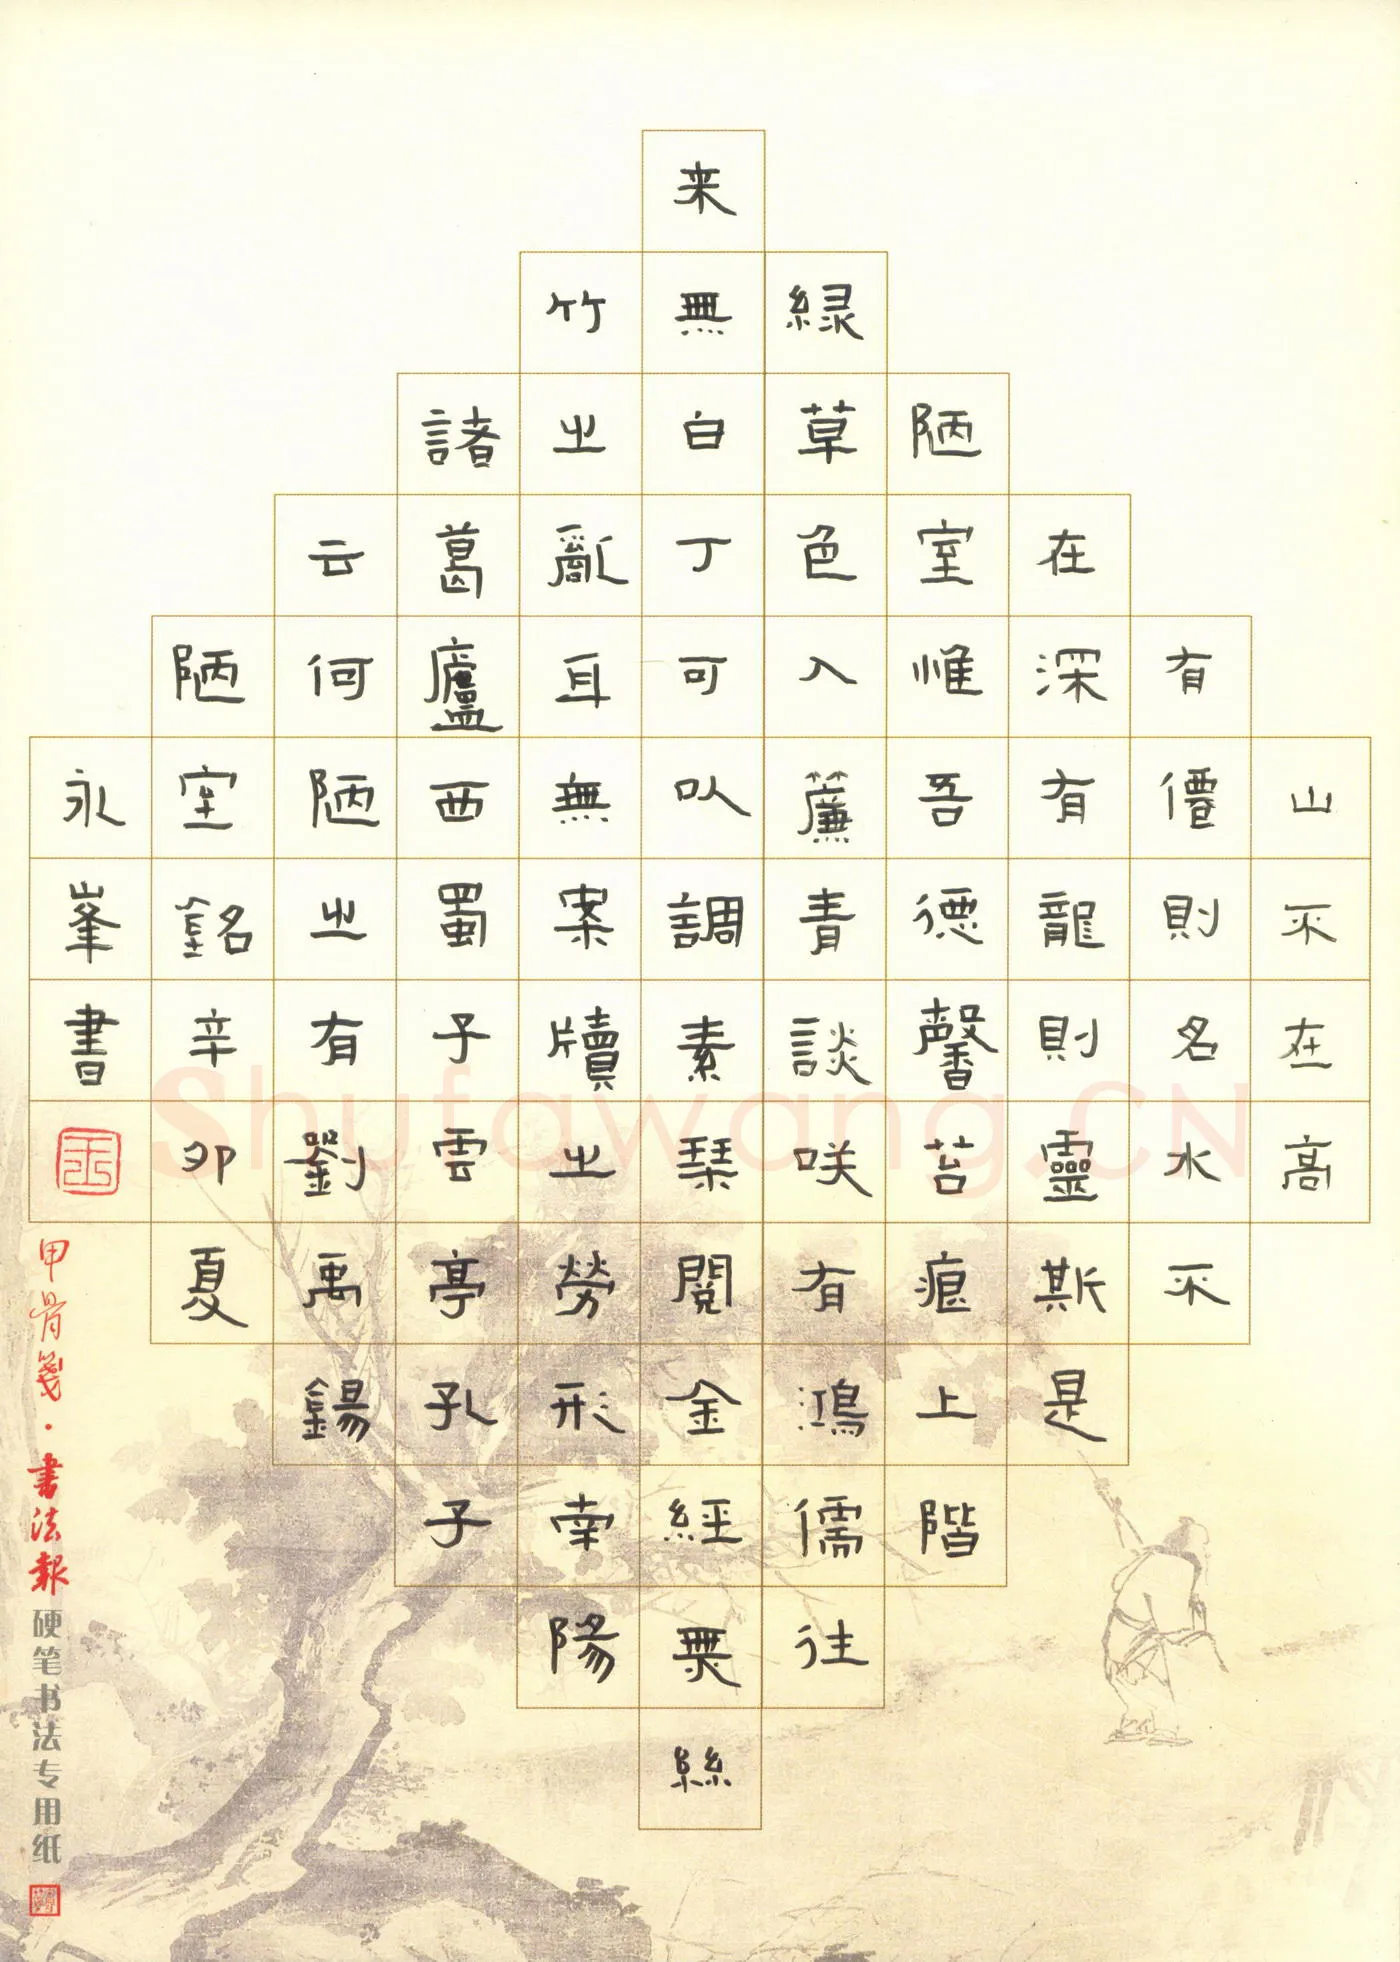 山不在高
有僊則名水不
在深有龍則靈斯是
陋室惟吾德馨苔痕上階
緑草色入簾青談咲有鴻儒往
来無白丁可以調素琹閱金經無絲
竹之亂耳無案牘之勞形南陽
諸葛廬西蜀子雲亭孔子
云何陋之有劉禹錫
陋室銘辛卯夏
永峯書
甲骨笺·書法報
硬笔书法专用纸
Shufawang.CN